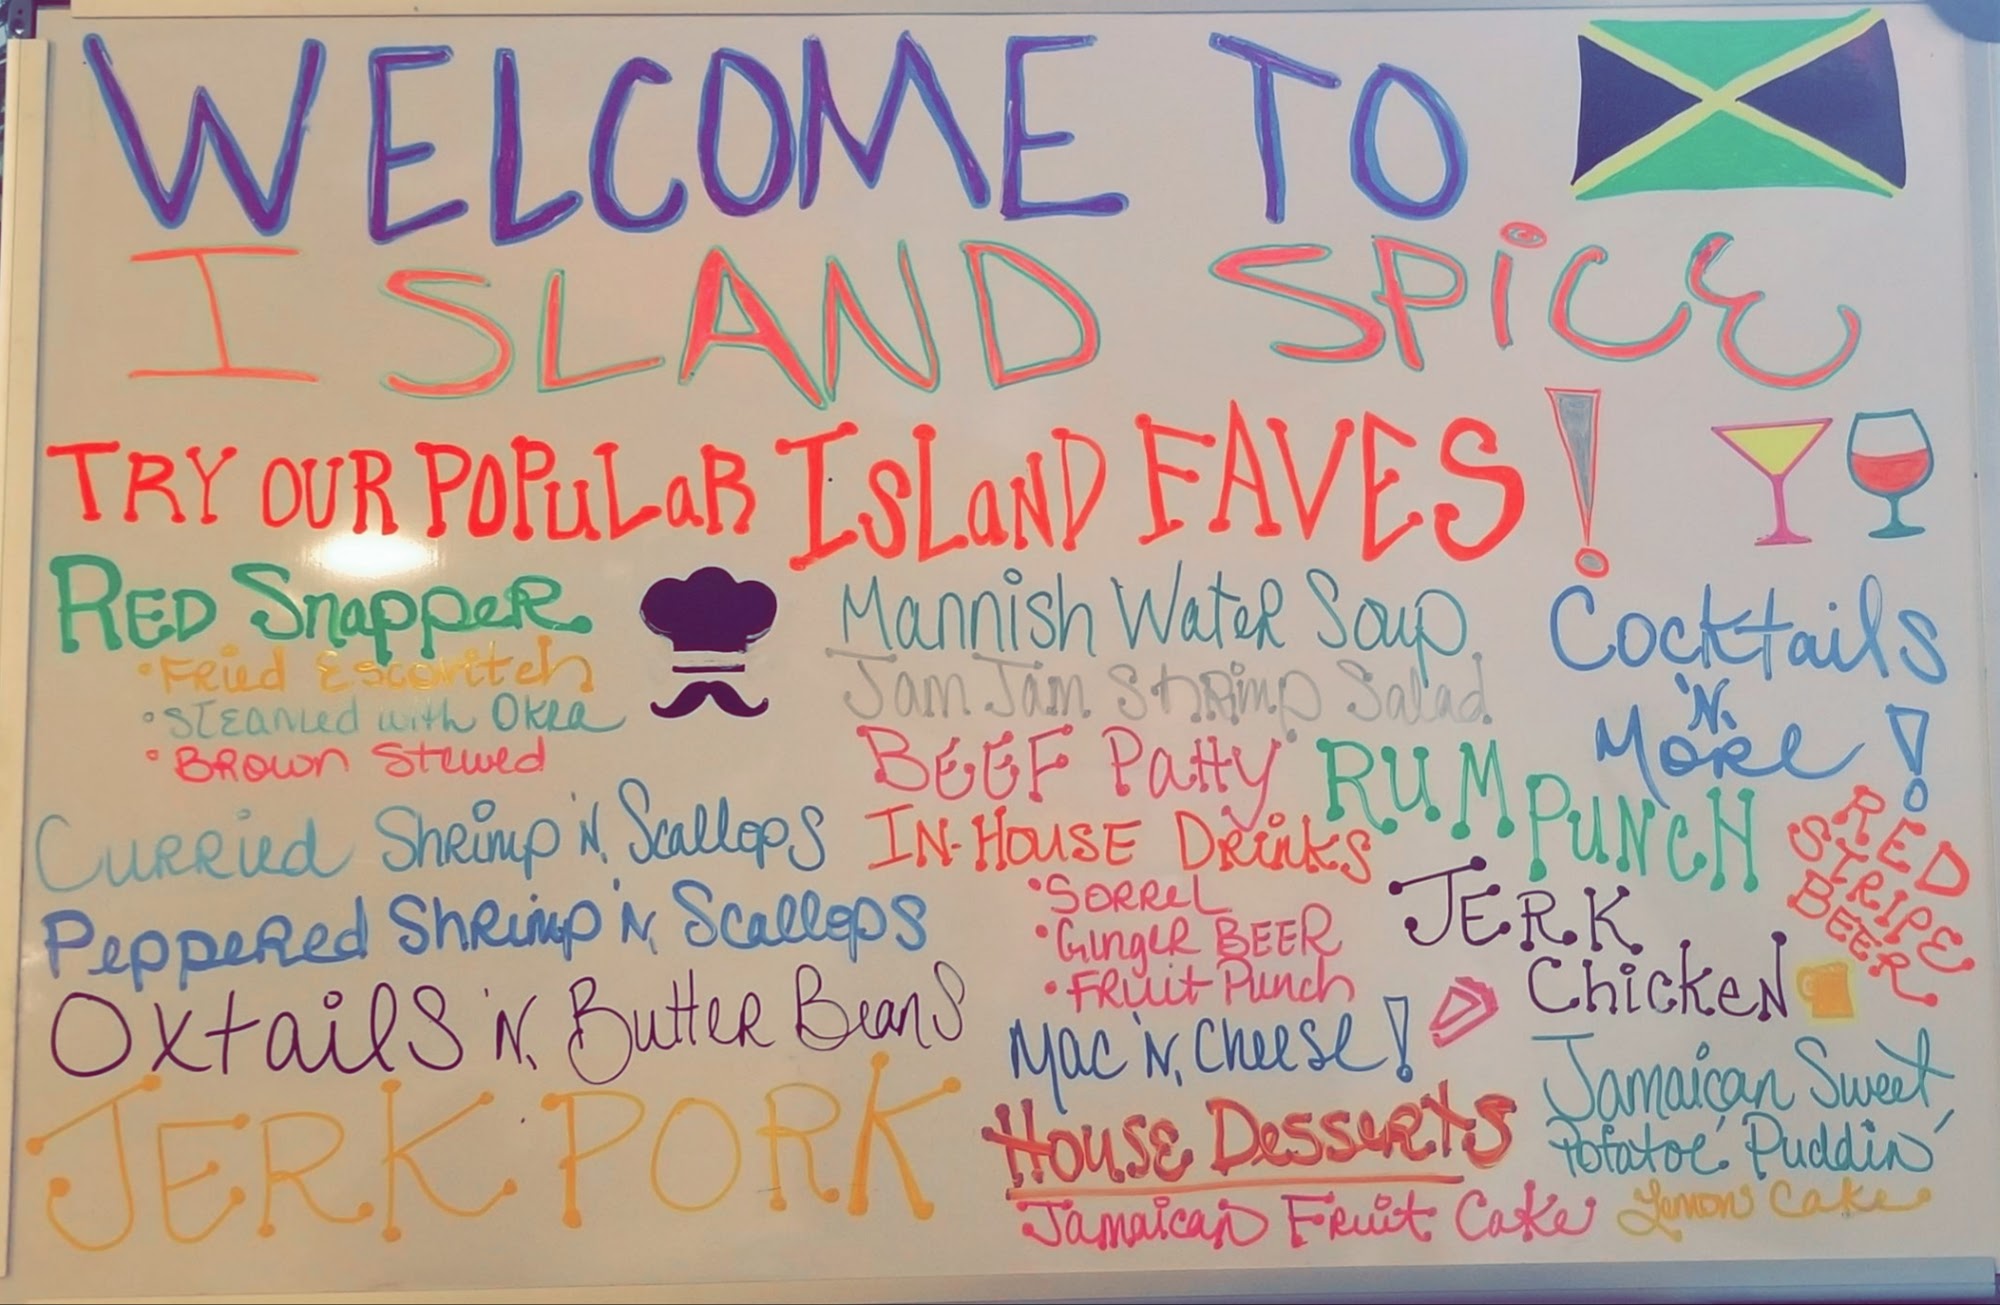 WELCOME TO
ISLAND SPiCE
TRY OUR POPuLaR ISLaND FAVES!
RED SnappeR
• FRied Escovitch
• STEAMED with OkRa
• BROWN Stewed
CuRRied ShRimp 'N, Scallops
PeppeRed ShRimp 'N, Scallops
Oxtails 'N, ButteR Beans
JERK PORK
Mannish WateR Soup
Jam Jam ShRimp Salad
BEEF Patty
IN-HOUSE DRinks
• SORREL
• GingeR BEER
• FRuit Punch
Mac 'N, Cheese!
House DesseRts
Jamaican FRuit Cake
Cocktails
'N,
MoRe!
RUM
PUNcH
RED
STRIPE
BEER
JERK
ChickeN
Jamaican Sweet
Potatoe' Puddin'
Lemon Cake